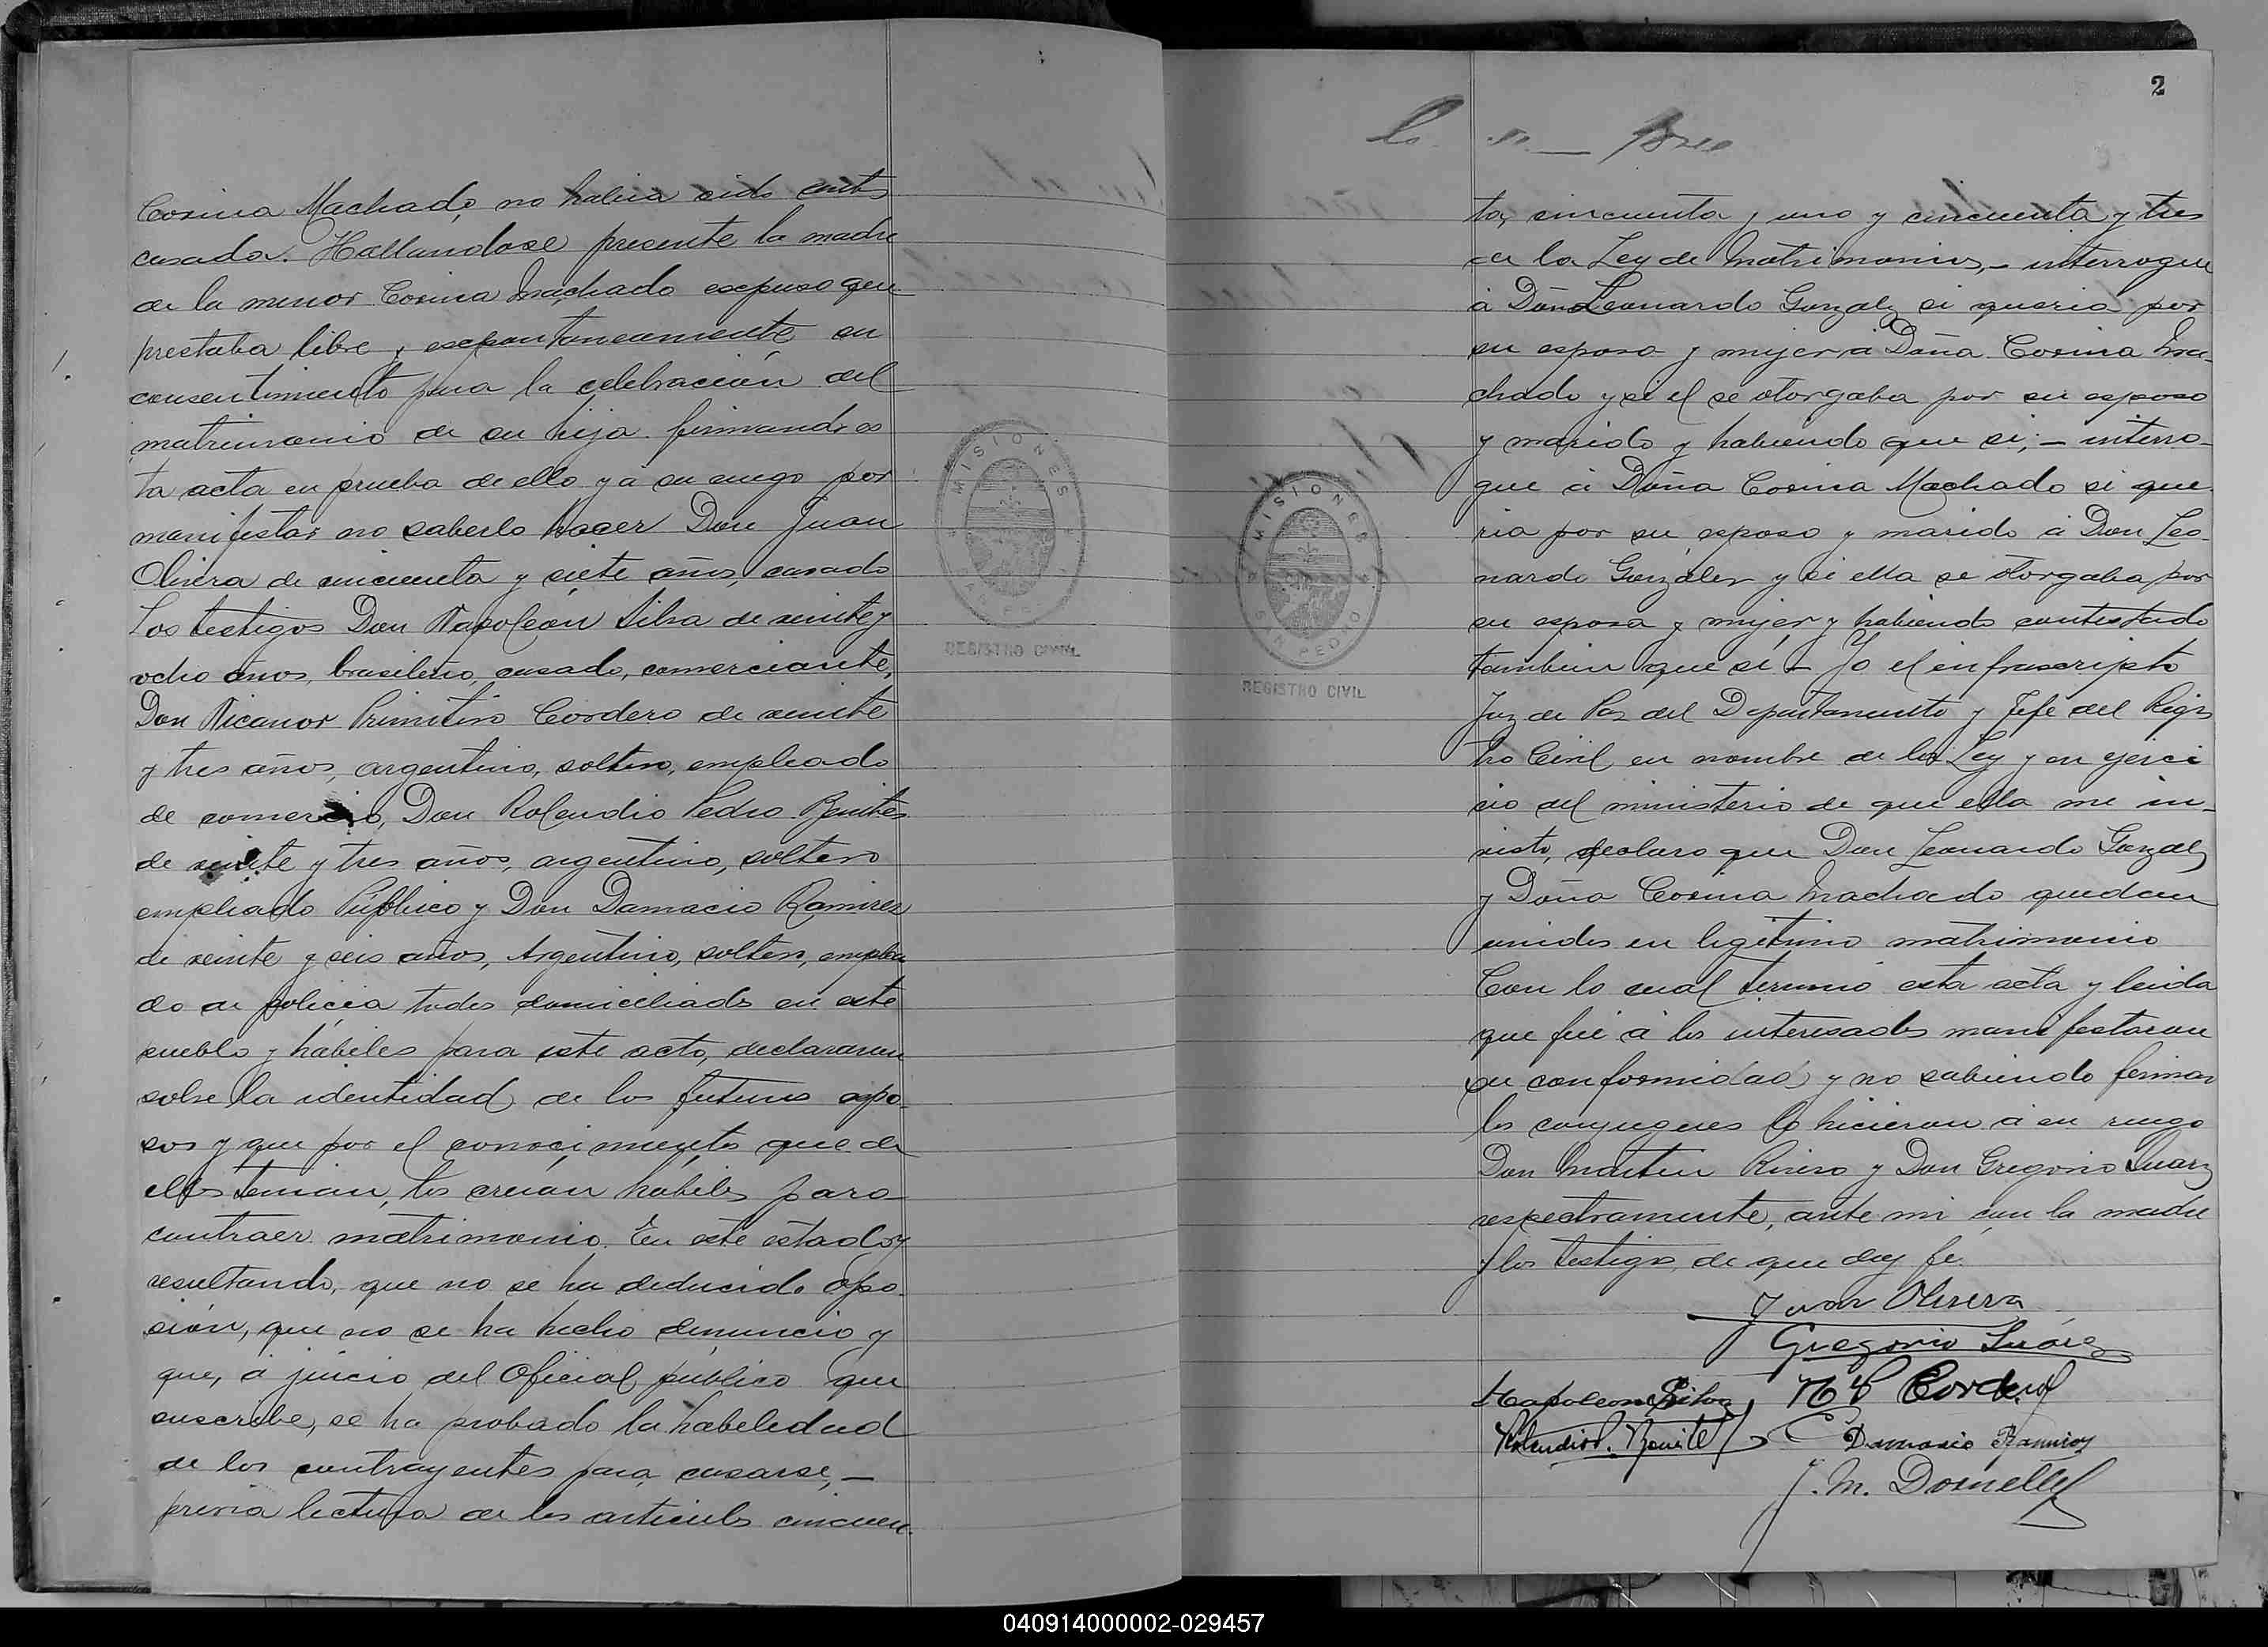 Corina Machado, no habia sido antes
casada. Hallandose presente la madre
de la menor Corina Machado expuso que
prestaba libre y expontaneamente su
consentimiento para la celebración del
matrimonio de su hija firmando es
ta acta en prueba de ello y á su ruego por
manifestar no saberlo hacer Don Juan
Olivera de cincuenta y siete años, casado
Los testigos Don Napoleón Silva de veinte y
ocho años, brasilero, casado, comerciante,
Don Nicanor Primitivo Cordero de veinte
y tres años, argentino, soltero, empleado
de comercio, Don Rolendio Pedro Benites
de veinte y tres años, argentino, soltero
empleado Público y Don Damacio Ramirez
de veinte y seis años, Argentino, soltero, emplea
do de policia todos domiciliados en este
pueblo y hábiles para este acto, declararon
sobre la identidad de los futuros espo-
sos y que por el conocimiento que de
ellos tenian, los creían hábiles para
contraer matrimonio. En este estado y
resultando, que no se ha deducido opo-
sión, que no se ha hecho denuncia y
que, á juicio del Oficial público que
suscribe, se ha probado la habeledad
de los contrayentes para casarse,-
previa lectura de los articulos cincuen-
MISIONES
SAN PEDRO
REGISTRO CIVIL
2
ta, cincuenta y uno y cincuenta y tres
de la Ley de Matrimonios,- interrogue
á Don Leonardo Gonzalez si queria por
su esposa y mujer á Doña Corina Ma-
chado y si el se otorgaba por su esposo
y marido y habiendo que si;- interro-
gue á Doña Corina Machado si que-
ria por su esposo y marido á Don Leo-
nardo Gonzalez y si ella se otorgaba por
su esposa y mujer y habiendo contestado
tambien que sí - Yo el infrascripto
Juez de Paz del Departamento y Jefe del Regis
tro Civil en nombre de la Ley y en ejerci
cio del ministerio de que ella me in-
viste, declaro que Don Leonardo Gonzalez
y Doña Corina Machado quedan
unidos en legitimo matrimonio
Con lo cual terminó esta acta y leida
que fué á los interesados manifestaron
su conformidad y no sabiendo firmar
los conyugues lo hicieron á su ruego
Don Martin Rivero y Don Gregorio Suarez
respectivamente, ante mi con la madre
y los testigos de que doy fe.
Juan Olivera
Gregorio Suárez
Napoleon Silva N P Cordero
Rolendio P. Benitez Damasio Ramirez
J. M. Dornelles
MISIONES
SAN PEDRO
REGISTRO CIVIL
040914000002-029457